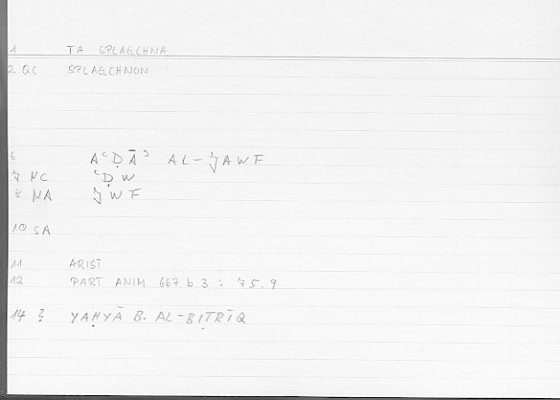 1 TA SPLAGCHNA
2 QC SPLAGCHNON
6 AʿḌĀʾ AL-JAWF
7 NC ʿḌW
8 NA JWF
10 SA
11 ARIST
12 PART ANIM 667 b 3 : 75.9
14 ? YAḤYĀ B. AL-BIṬRĪQ